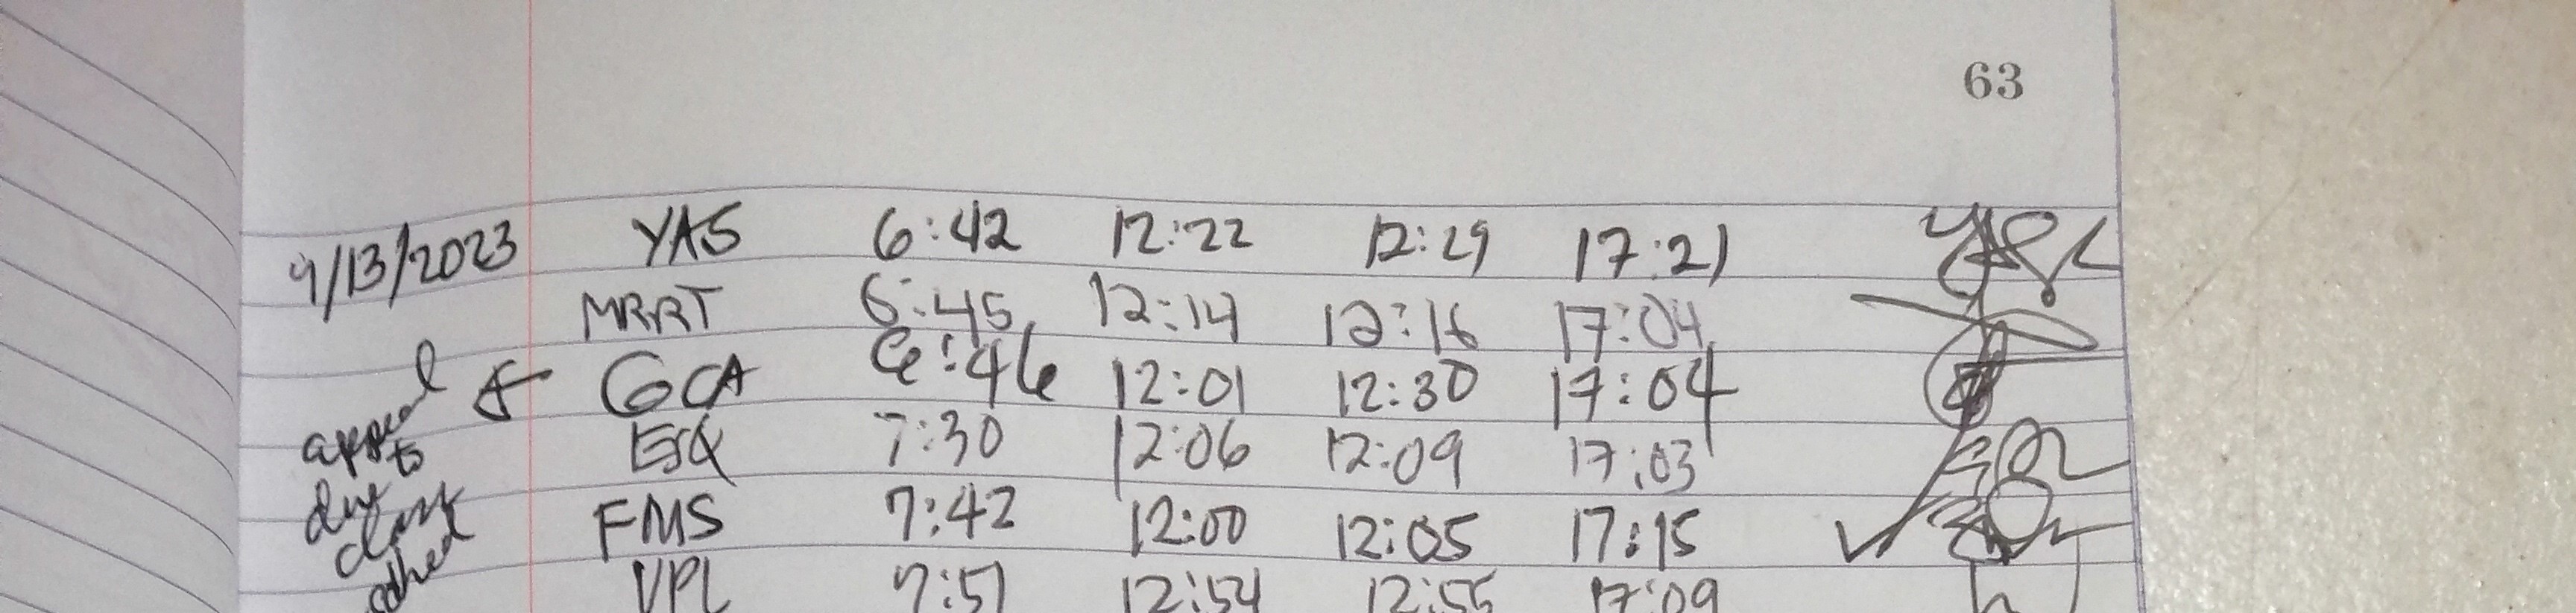 63
9/13/2023 YAS 6:42 12:22 12:29 17:21
MRRT 6:45 12:14 12:16 17:04
GCA 6:46 12:01 12:30 17:04
appeal
to
ESQ 7:30 12:06 12:09 17:03
due
FMS 7:42 12:00 12:05 17:15
class
VPL 7:51 12:54 12:55 17:09